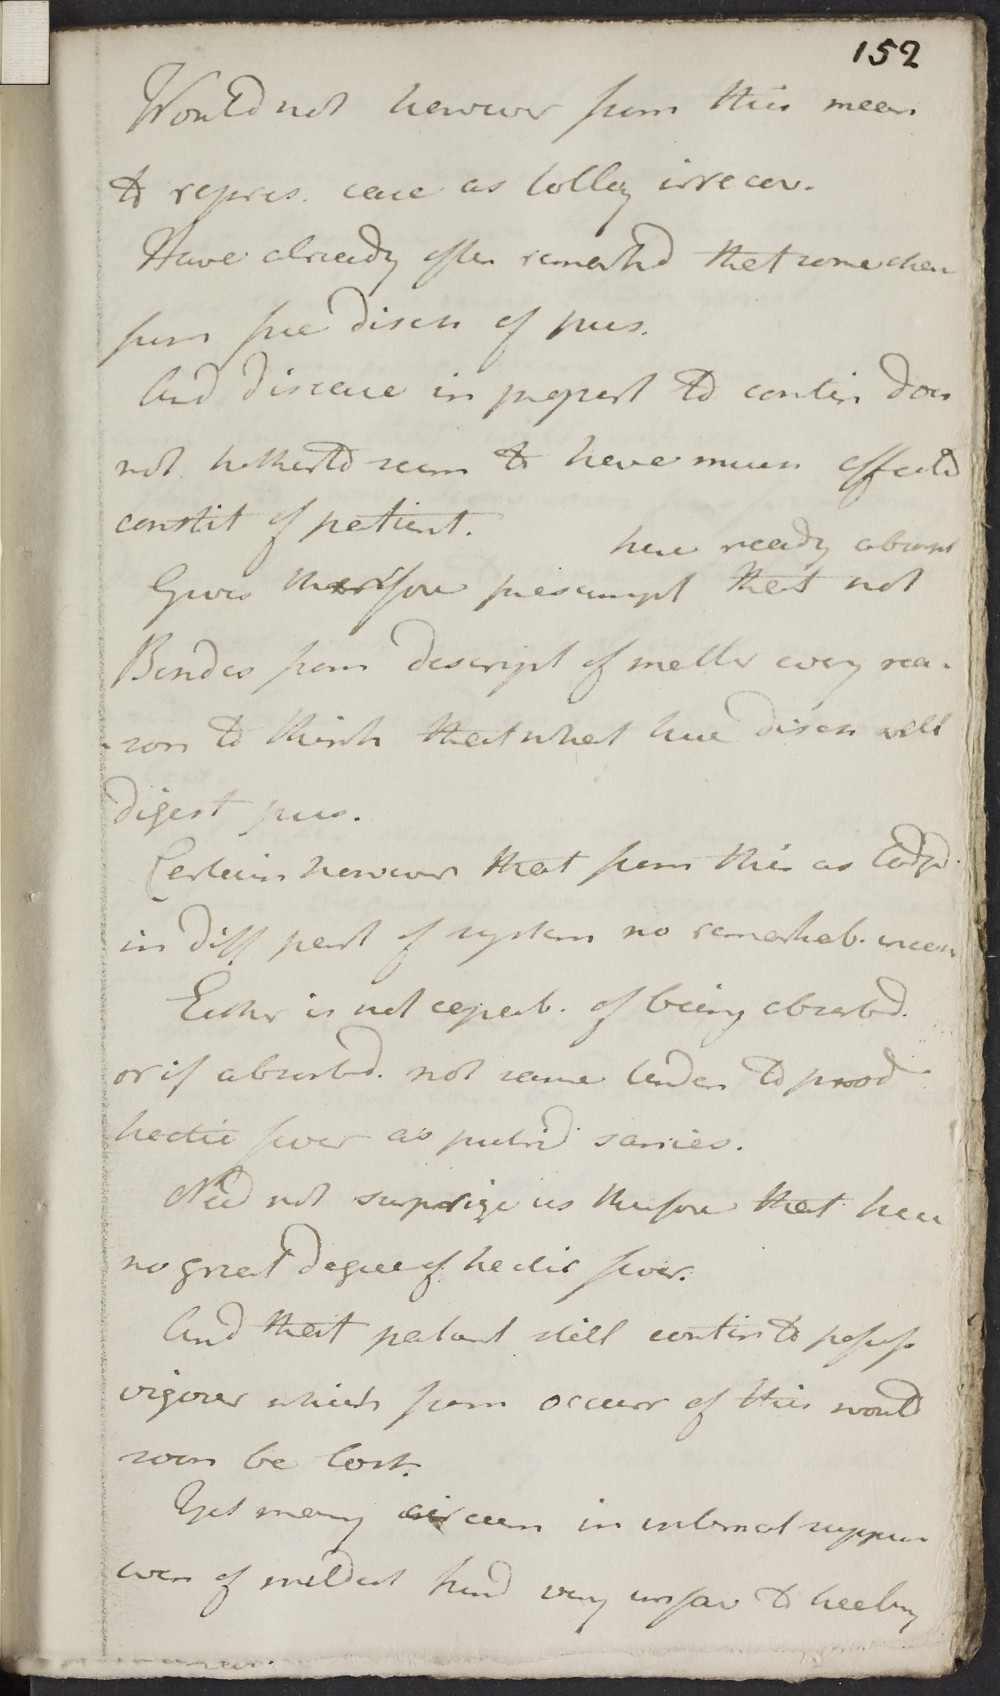 152
Would not however from this mean
to repres. case as totally irrecov.
Have already often remarked that some chan
from free disch of pus.
And disease in propert to contin does
not hitherto seem to have much affected
constit of patient.
have ready absorpt
Gives therefore presumpt that not
Besides from descript of matter every rea-
son to think that what have disch well
digest pus.
Certain however that from this as lodged
in diff part of system no remarkab. incon
Either is not capab. of being absorbed.
or if absorbed. not same tenden to prod
hectic fever as putrid sanies.
Need not surprize us therefore that here
no great degree of hectic fever.
And that patient still contin to possess
vigour which from occurr of this would
soon be lost.
Yet many circum in internal suppur
even of mildest kind very unfav to healing